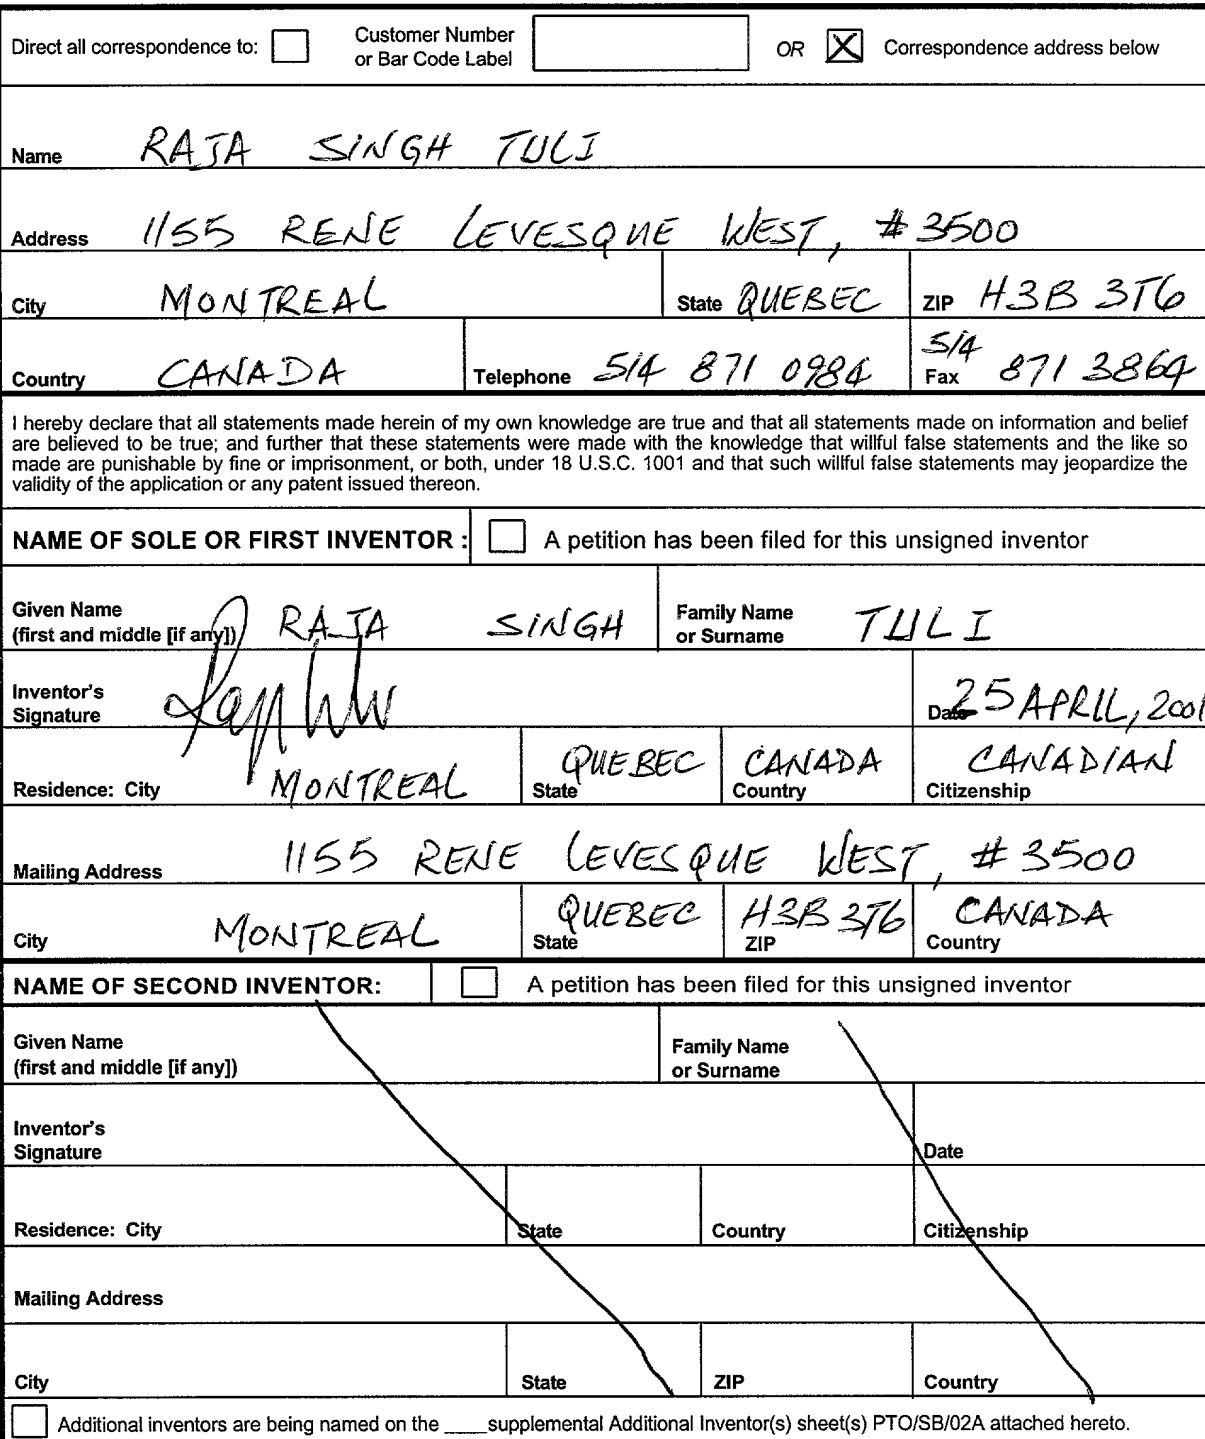 Direct all correspondence to: Customer Number or Bar Code Label OR X Correspondence address below
Name RAJA SINGH TULI
Address 1155 RENE LEVESQUE WEST, # 3500
City MONTREAL State QUEBEC ZIP H3B 3T6
Country CANADA Telephone 514 871 0984 Fax 514 871 3864
I hereby declare that all statements made herein of my own knowledge are true and that all statements made on information and belief
are believed to be true; and further that these statements were made with the knowledge that willful false statements and the like so
made are punishable by fine or imprisonment, or both, under 18 U.S.C. 1001 and that such willful false statements may jeopardize the
validity of the application or any patent issued thereon.
NAME OF SOLE OR FIRST INVENTOR : A petition has been filed for this unsigned inventor
Given Name (first and middle [if any]) RAJA SINGH Family Name or Surname TULI
Inventor's Signature Date 25 APRIL, 2001
Residence: City MONTREAL State QUEBEC Country CANADA Citizenship CANADIAN
Mailing Address 1155 RENE LEVESQUE WEST, # 3500
City MONTREAL State QUEBEC ZIP H3B 3T6 Country CANADA
NAME OF SECOND INVENTOR: A petition has been filed for this unsigned inventor
Given Name (first and middle [if any]) Family Name or Surname
Inventor's Signature Date
Residence: City State Country Citizenship
Mailing Address
City State ZIP Country
Additional inventors are being named on the ____supplemental Additional Inventor(s) sheet(s) PTO/SB/02A attached hereto.